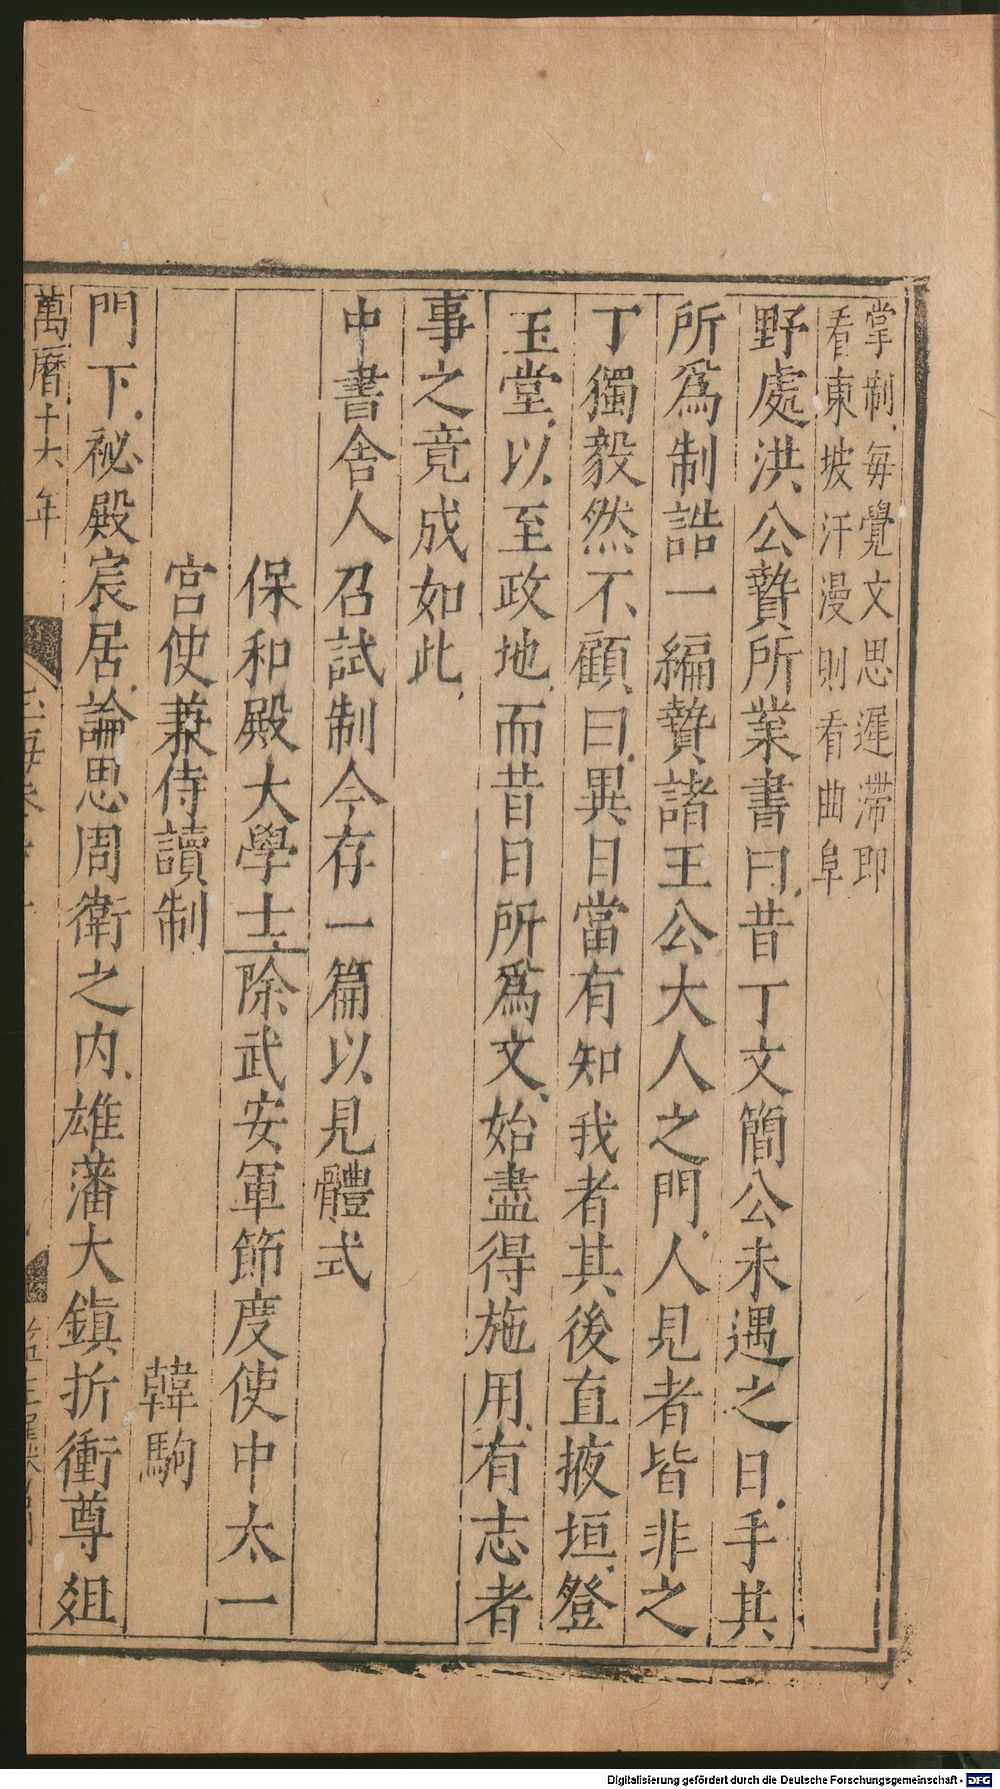 掌制每覺文思遲滯即
看東坡汗漫則看曲阜
野處洪公贄所業書曰昔丁文簡公未遇之日手其
所爲制誥一編贄諸王公大人之門人見者皆非之
丁獨毅然不顧曰異日當有知我者其後直掖垣登
玉堂以至政地而昔日所爲文始盡得施用有志者
事之竟成如此
中書舍人召試制今存一篇以見體式
保和殿大學士除武安軍節度使中太一
宮使兼侍讀制
韓駒
門下祕殿宸居論思周衛之内雄藩大鎮折衝尊俎
萬曆十六年
Digitalisierung gefördert durch die Deutsche Forschungsgemeinschaft - DFG